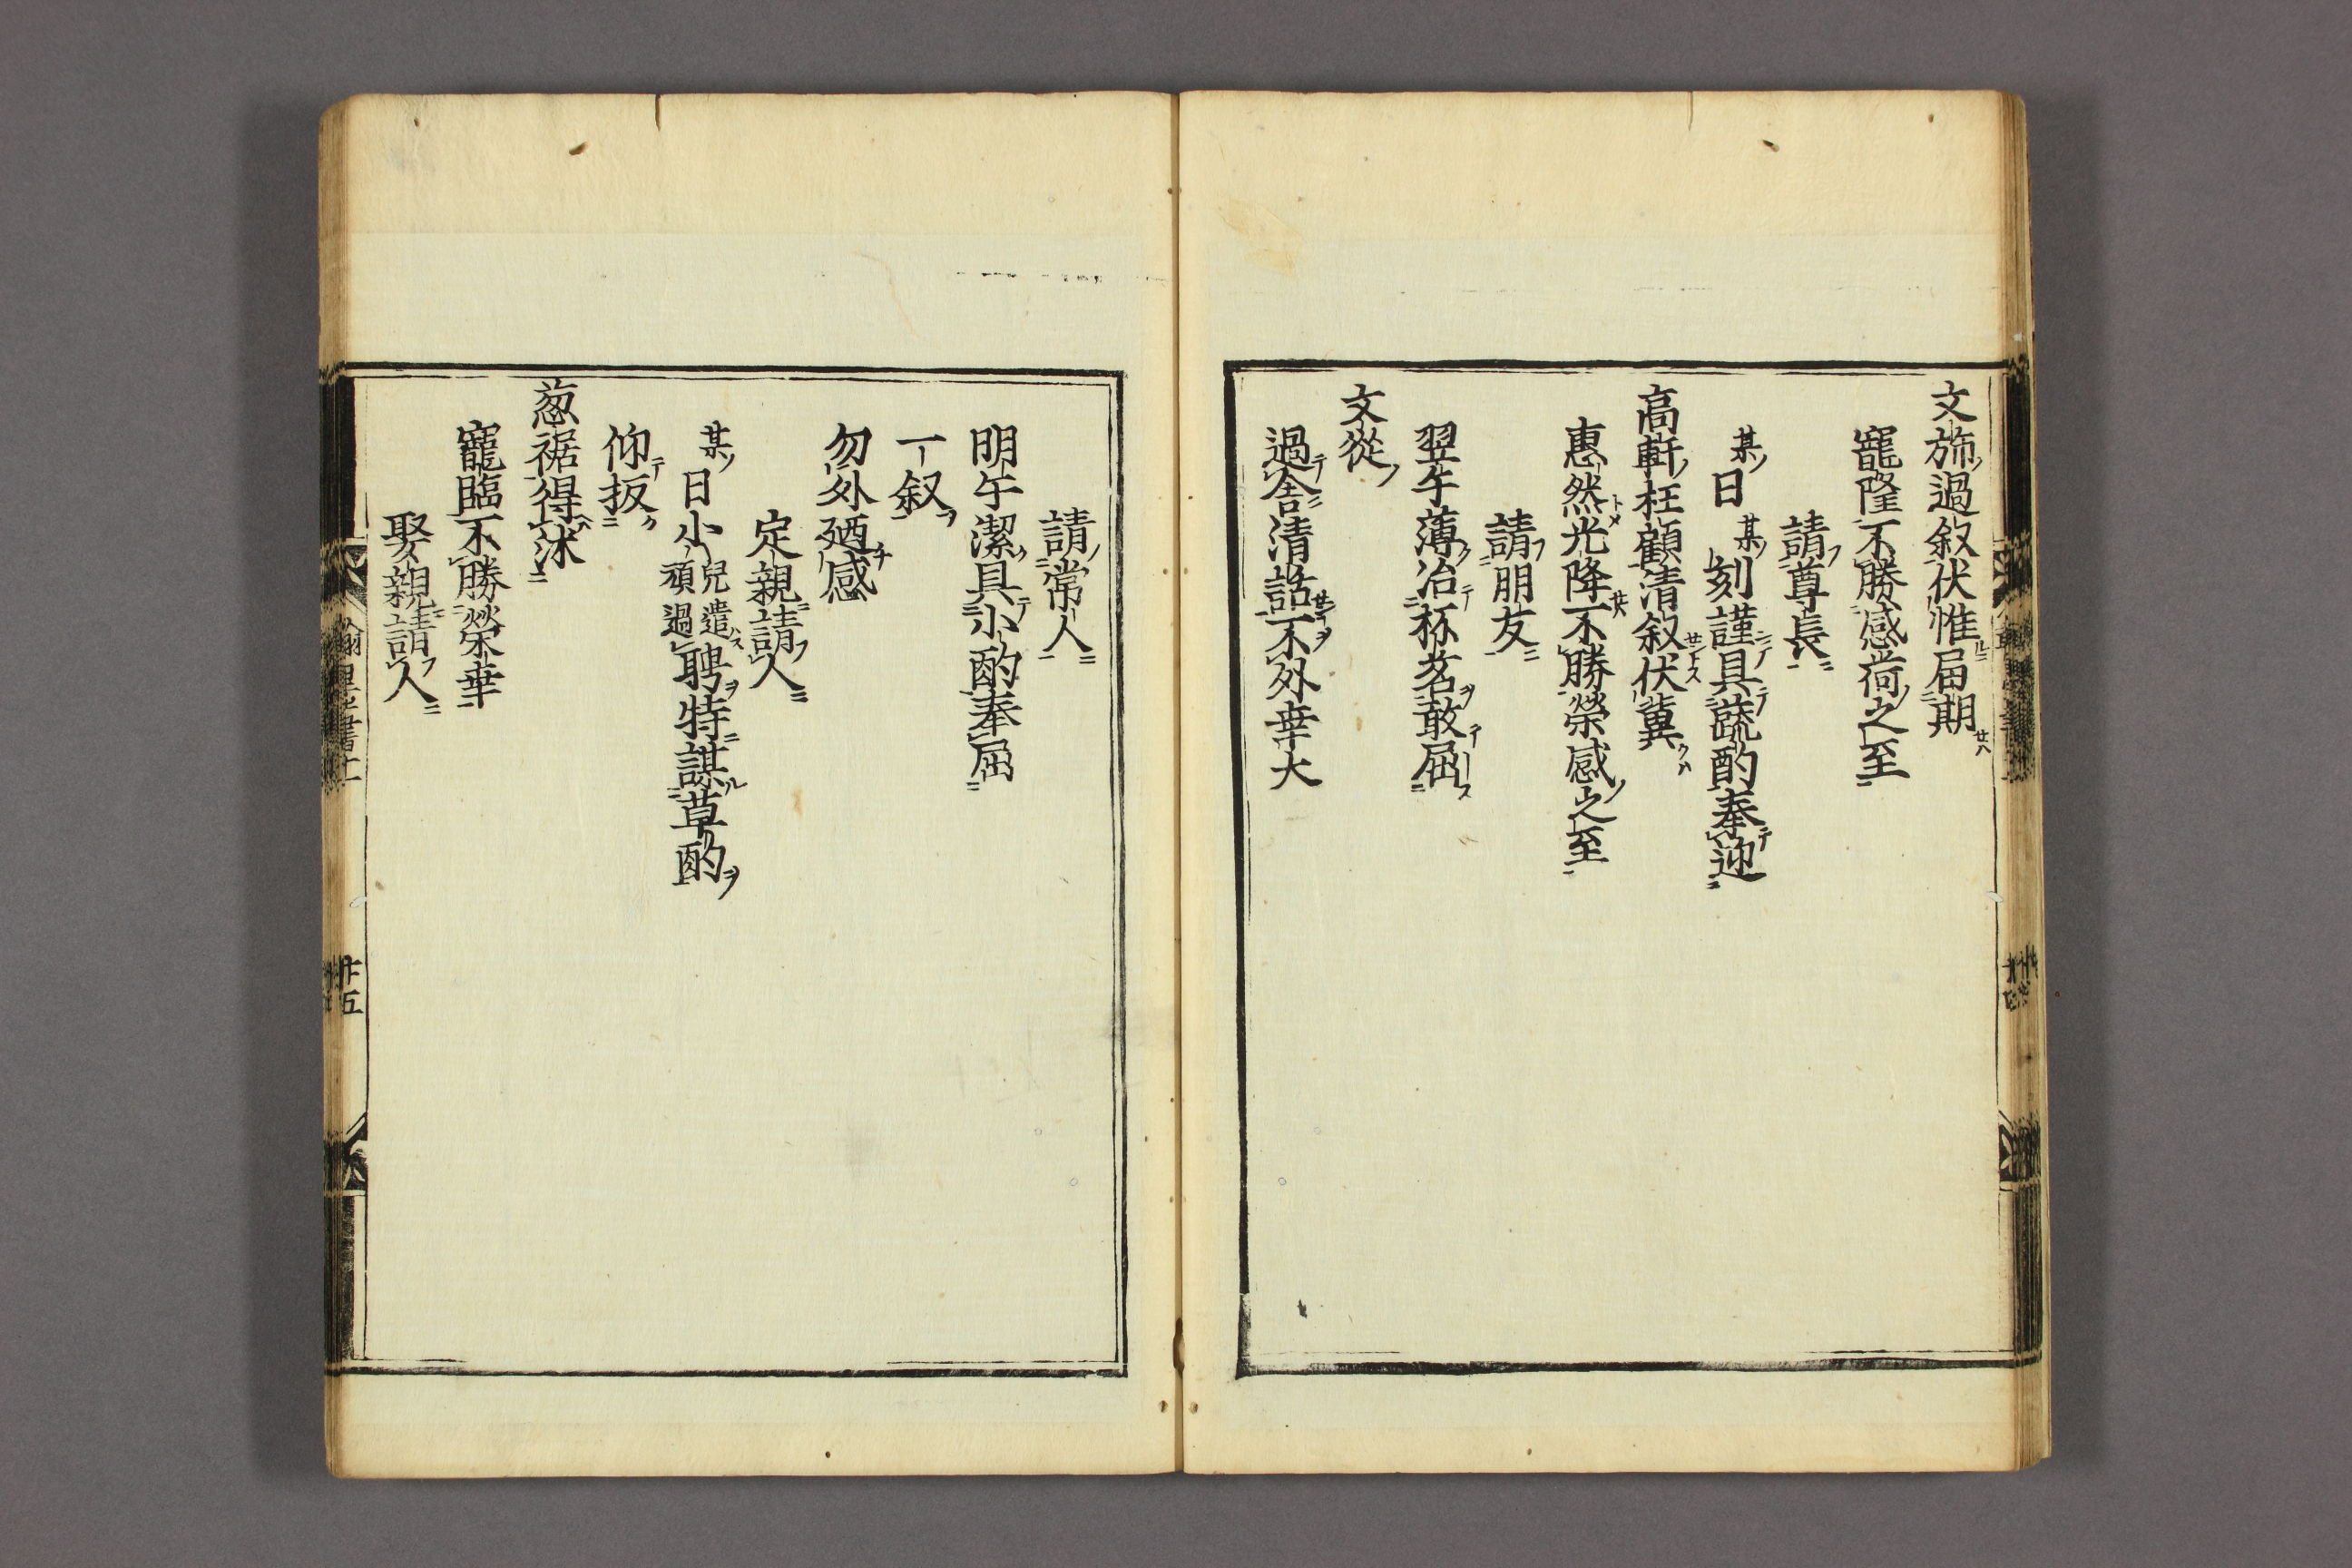 文旆過叙伏惟届期
寵隆不勝感荷之至
請尊長
某日某刻謹具蔬酌奉迎
高軒枉顧清叙伏冀
惠然光降不勝榮感之至
請朋友
翌午薄治杯茗敢屈
文從
過舎清話不外幸大
請常人
明午潔具小酌奉屈
一叙
勿外廼感
定親請人
某日小兒遣頑過聘特謀草酌
仰扳
蔥裾得沐
寵臨不勝榮幸
娶親請人
廿五